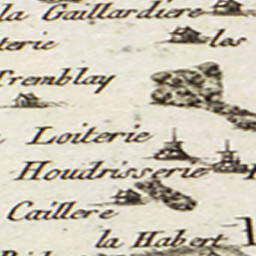 la Gaillardiere
terie
les
Tremblay
Loiterie
Houdrisserie
Caillere
la Habert